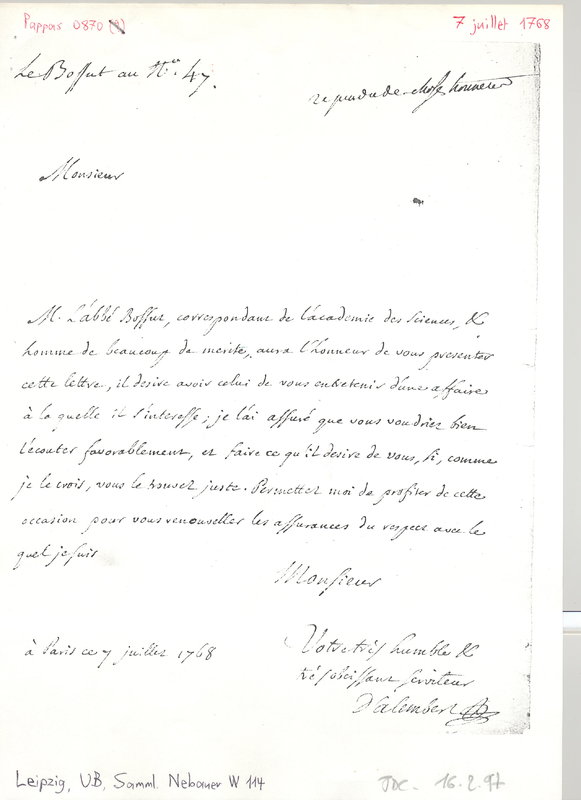 Pappas 0870 (2)
7 juillet 1768
Le Bossut au N.º 47.
rependu de chose honneste
Monsieur
M. L'abbé Bossut, correspondant de l'académie des Sciences, &
homme de beaucoup de merite, aura l'honneur de vous presenter
cette lettre, il desire avoir celui de vous entretenir d'une affaire
à la quelle il s'interesse; je l'ai assuré que vous voudriez bien
l'écouter favorablement, et faire ce qu'il desire de vous, si, comme
je le crois, vous le trouvez juste. Permettez moi de profiter de cette
occasion pour vous renouveller les assurances du respect avec le
quel je suis
Monsieur
Votre tres humble &
tres obeissant serviteur
D'alembert
à Paris ce 7 juillet 1768
Leipzig, UB, Samml. Nebauer W 114
JDC - 16.2.97